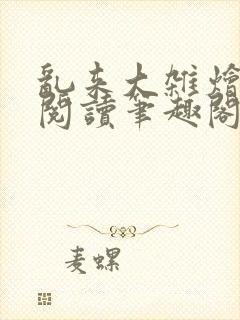 乱来大雜燴
閱讀筆趣閣
麦螺